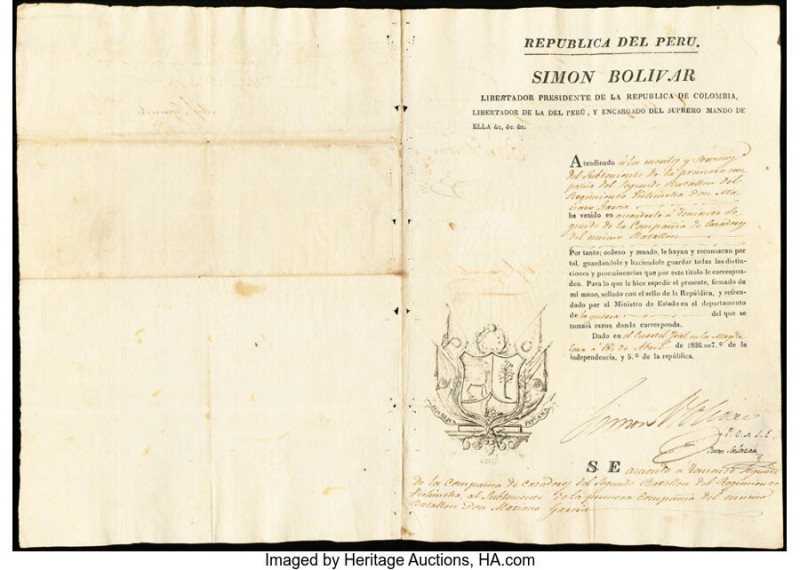 REPUBLICA DEL PERU.
SIMON BOLIVAR
LIBERTADOR PRESIDENTE DE LA REPUBLICA DE COLOMBIA,
LIBERTADOR DE LA DEL PERÚ, Y ENCARGADO DEL SUPREMO MANDO DE
ELLA &c, &c. &c.
Atendiendo a los meritos y servicios
del Subteniente de la primera com
pañia del Segundo Batallon del
Regimiento Pichincha Don Ma
riano Garcia
ha venido en ascenderlo a Teniente Se
gundo de la Compañia de Cazadores
del mismo Batallon
Por tanto; ordeno y mando, le hayan y reconozcan por
tal, guardandole y haciendole guardar todas las distin-
ciones y preeminencias que por este titulo le correspon-
den. Para lo que le hice expedir el presente, firmado de
mi mano, sellado con el sello de la República, y refren-
dado por el Ministro de Estado en el departamento
de la guerra del que se
tomará razon donde corresponda.
Dado en el Cuartel Jral en la Magda
lena a 18 de Abril de 1826.. 7.º de la
independencia, y 5.º de la república.
REPUBLICA PERUANA
Simon Bolivar
P. O. de S. E.
Juan Salazar
SE asciende a Teniente Segundo
de la Compañia de Cazadores del Segundo Batallon del Regimiento
Pichincha, al Subteniente de la primera Compañia del mismo
Batallon Don Mariano Garcia
Imaged by Heritage Auctions, HA.com